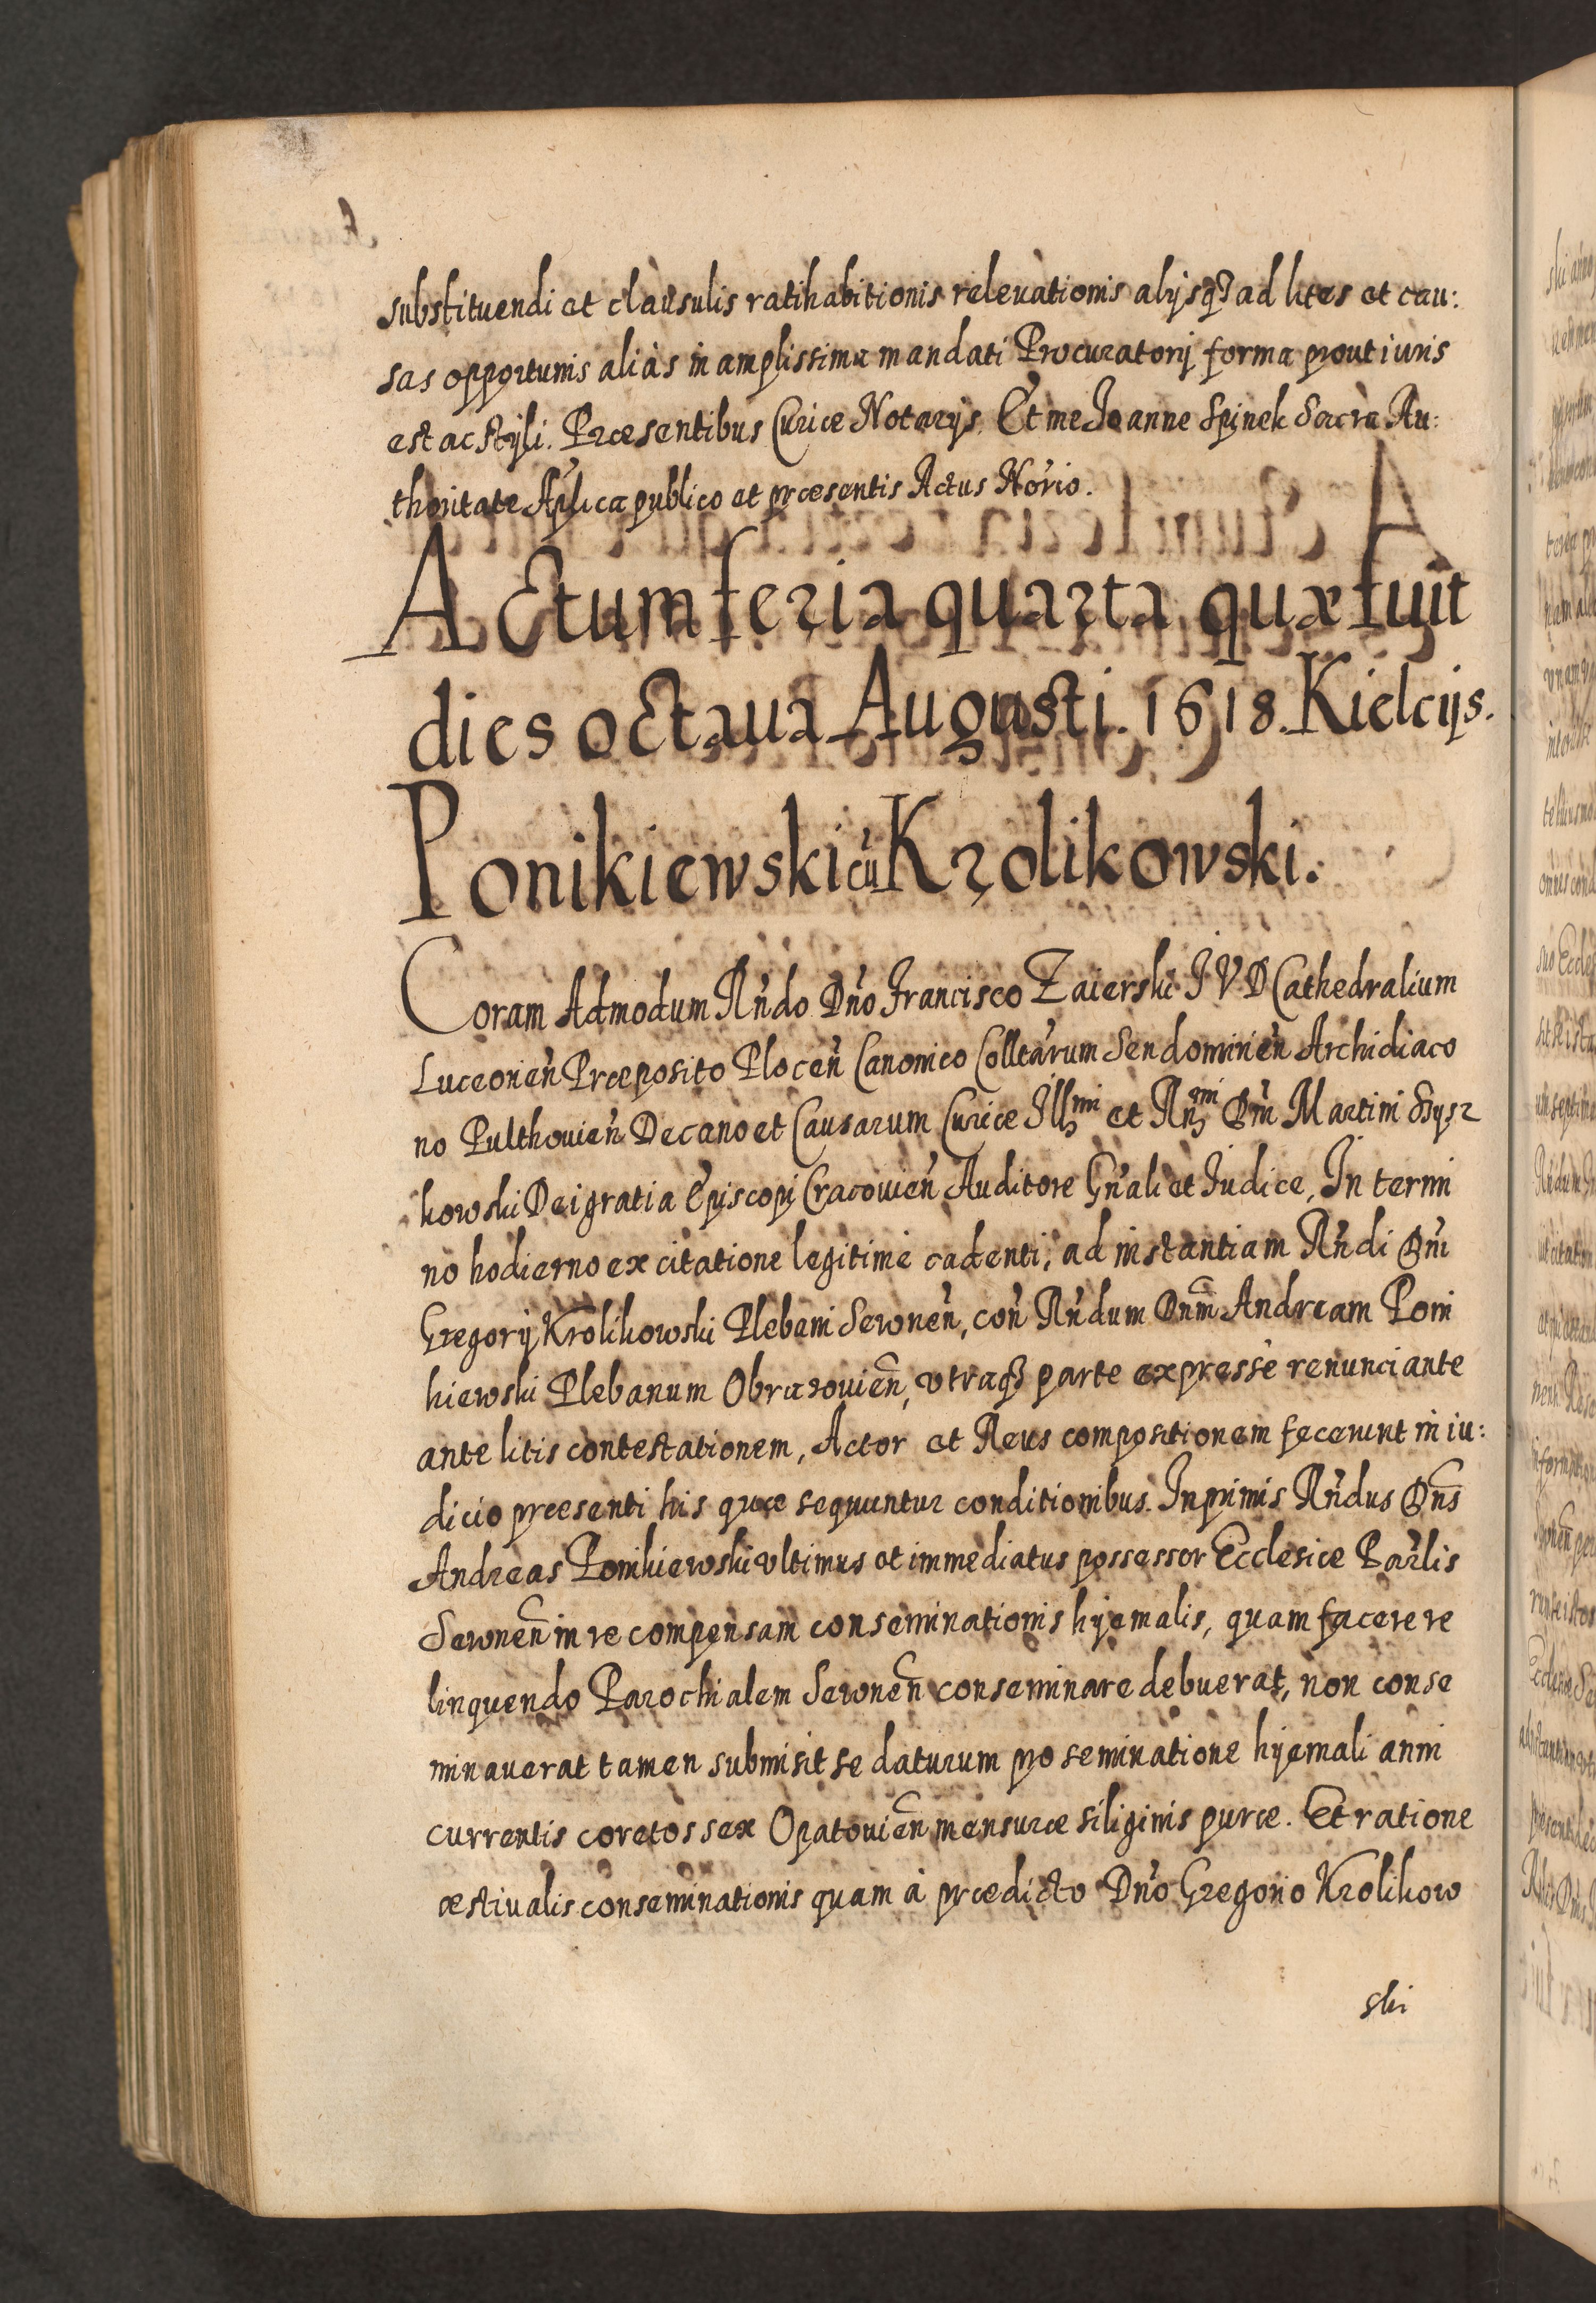 substituendi et clausulis ratihabitionis releuationis alijsqȝ ad lites et cau:
sas opportunis aliàs in amplissima mandati Procuratorij forma prout iuris
est ac styli. Præsentibus Curiæ Notarijs. Et me Joanne Spinek Sacra Au:
thoritate Aplica publico et præsentis Actus Norio.
Actum feria quarta quæ fuit
dies octaua Augusti. 1618. Kielcijs.
Ponikiewski cū Krolikowski.
Coram Admodum Rndo Dno Francisco Zaierski J V D Cathedralium
Luceorien Præposito Plocen Canonico Colltarum Sendomirien Archidiaco
no Pulthouien Decano et Causarum Curiæ Illmi et Rnmi Dni Martini Szysz
kowski Dei gratia Episcopi Cracouien Auditore Gnali et Iudice, In termi
no hodierno ex citatione legitimè cadenti, ad instantiam Rndi Dni
Gregorij Krolikowski Plebani Sewnen, con Rndum Dnm Andream Poni
kiewski Plebanum Obrazouien, vtraqȝ parte expressè renunciante
ante litis contestationem, Actor et Reus compositionem fecerunt in iu:
dicio præsenti his quæ sequuntur conditionibus. Inprimis Rndus Dns
Andreas Ponikiewski vltimus et immediatus possessor Ecclesiæ Parlis
Sewnen in recompensam conseminationis hyemalis, quam facere re
linquendo Parochialem Sewnen conseminare debuerat, non conse
minauerat tamen submisit se daturum pro seminatione hyemali anni
currentis coretos sex Opatouien mensuræ siliginis puræ. Et ratione
æstiualis conseminationis quam à prædicto Dno Gregorio Krolikow
ski